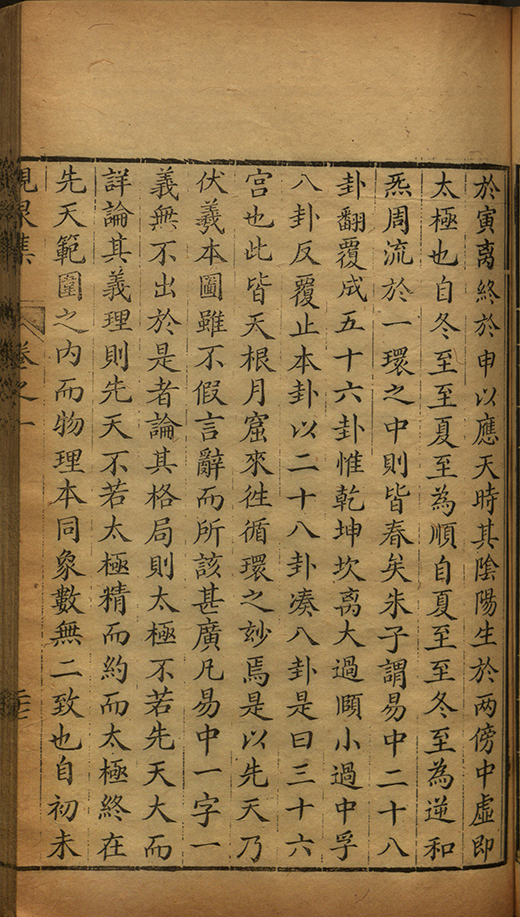 於寅离終於申以應天時其陰陽生於两傍中虛即
太極也自冬至至夏至為順自夏至至冬至為逆和
炁周流於一環之中則皆春矣朱子謂易中二十八
卦翻覆成五十六卦惟乾坤坎离大過頤小過中孚
八卦反覆止本卦以二十八卦凑八卦是曰三十六
宫也此皆天根月窟來徃循環之玅焉是以先天乃
伏羲本圖雖不假言辭而所該甚廣凡易中一字一
義無不出於是者論其格局則太極不若先天大而
詳論其義理則先天不若太極精而約而太極終在
先天範圍之内而物理本同象數無二致也自初未
峴泉集 卷之一